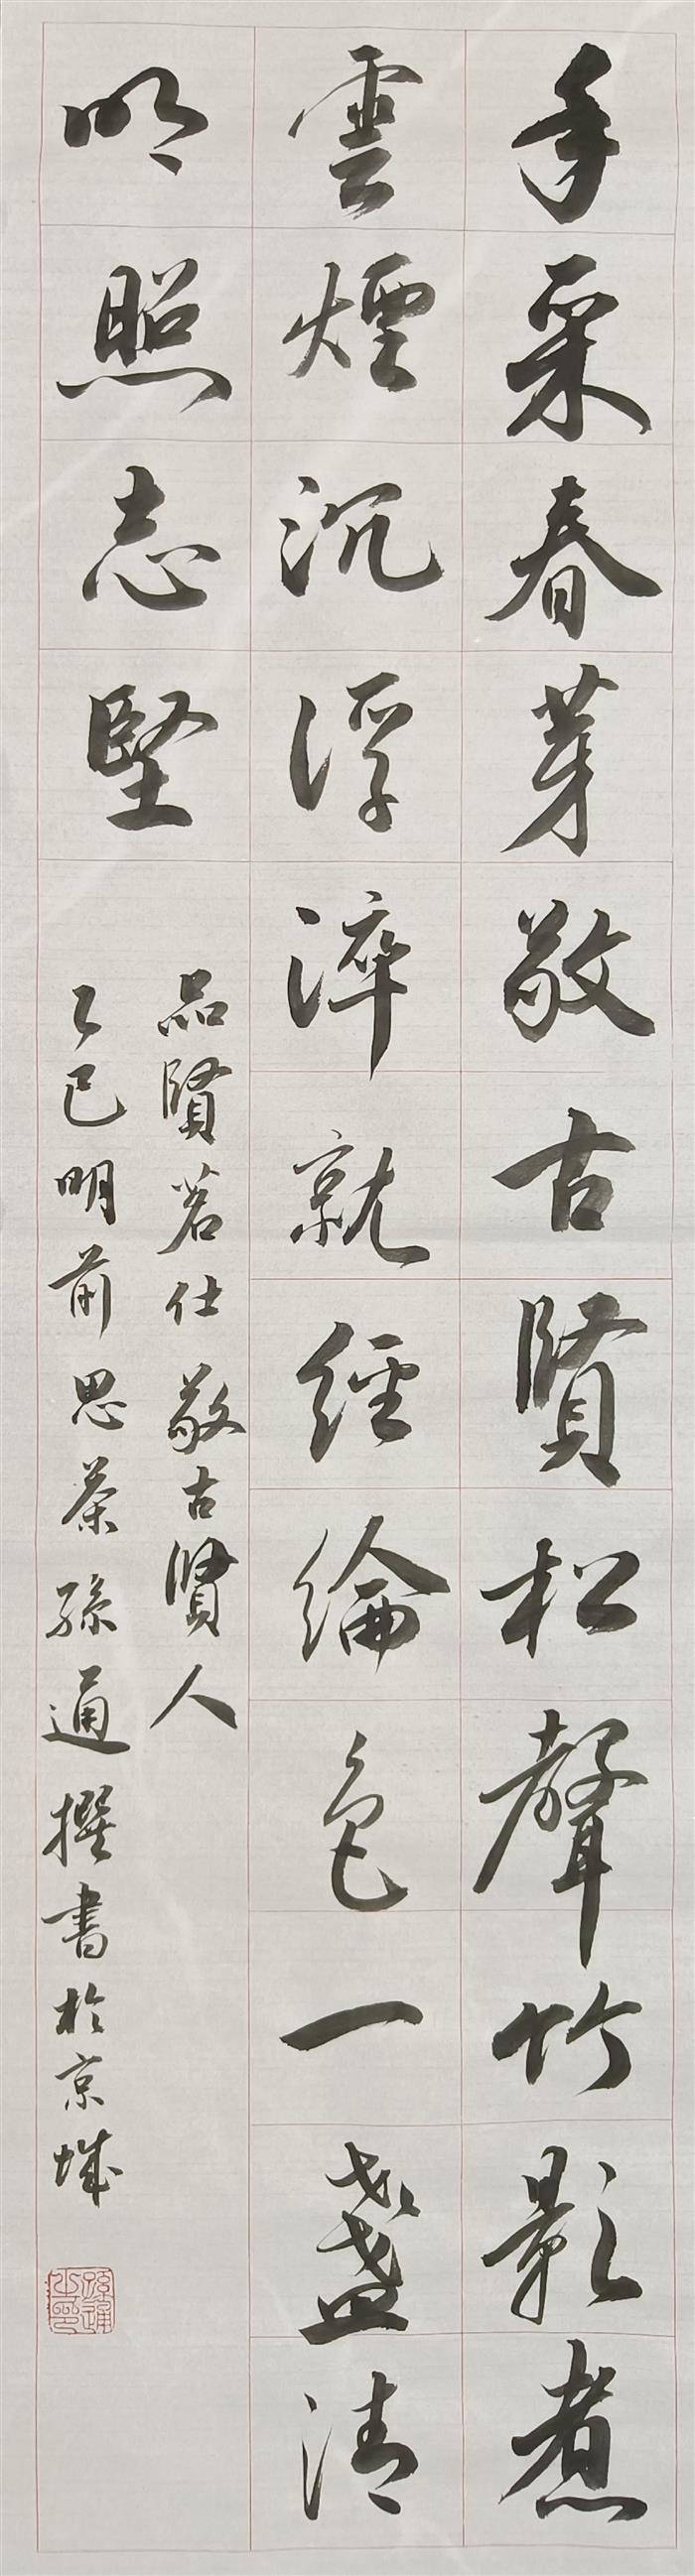 手采春芽敬古賢松聲竹影煮
雲煙沉浮淬就經綸色一盞清
明照志堅
品賢茗仕敬古賢人
乙巳明前思茶孫通撰書於京城
孫通之璽